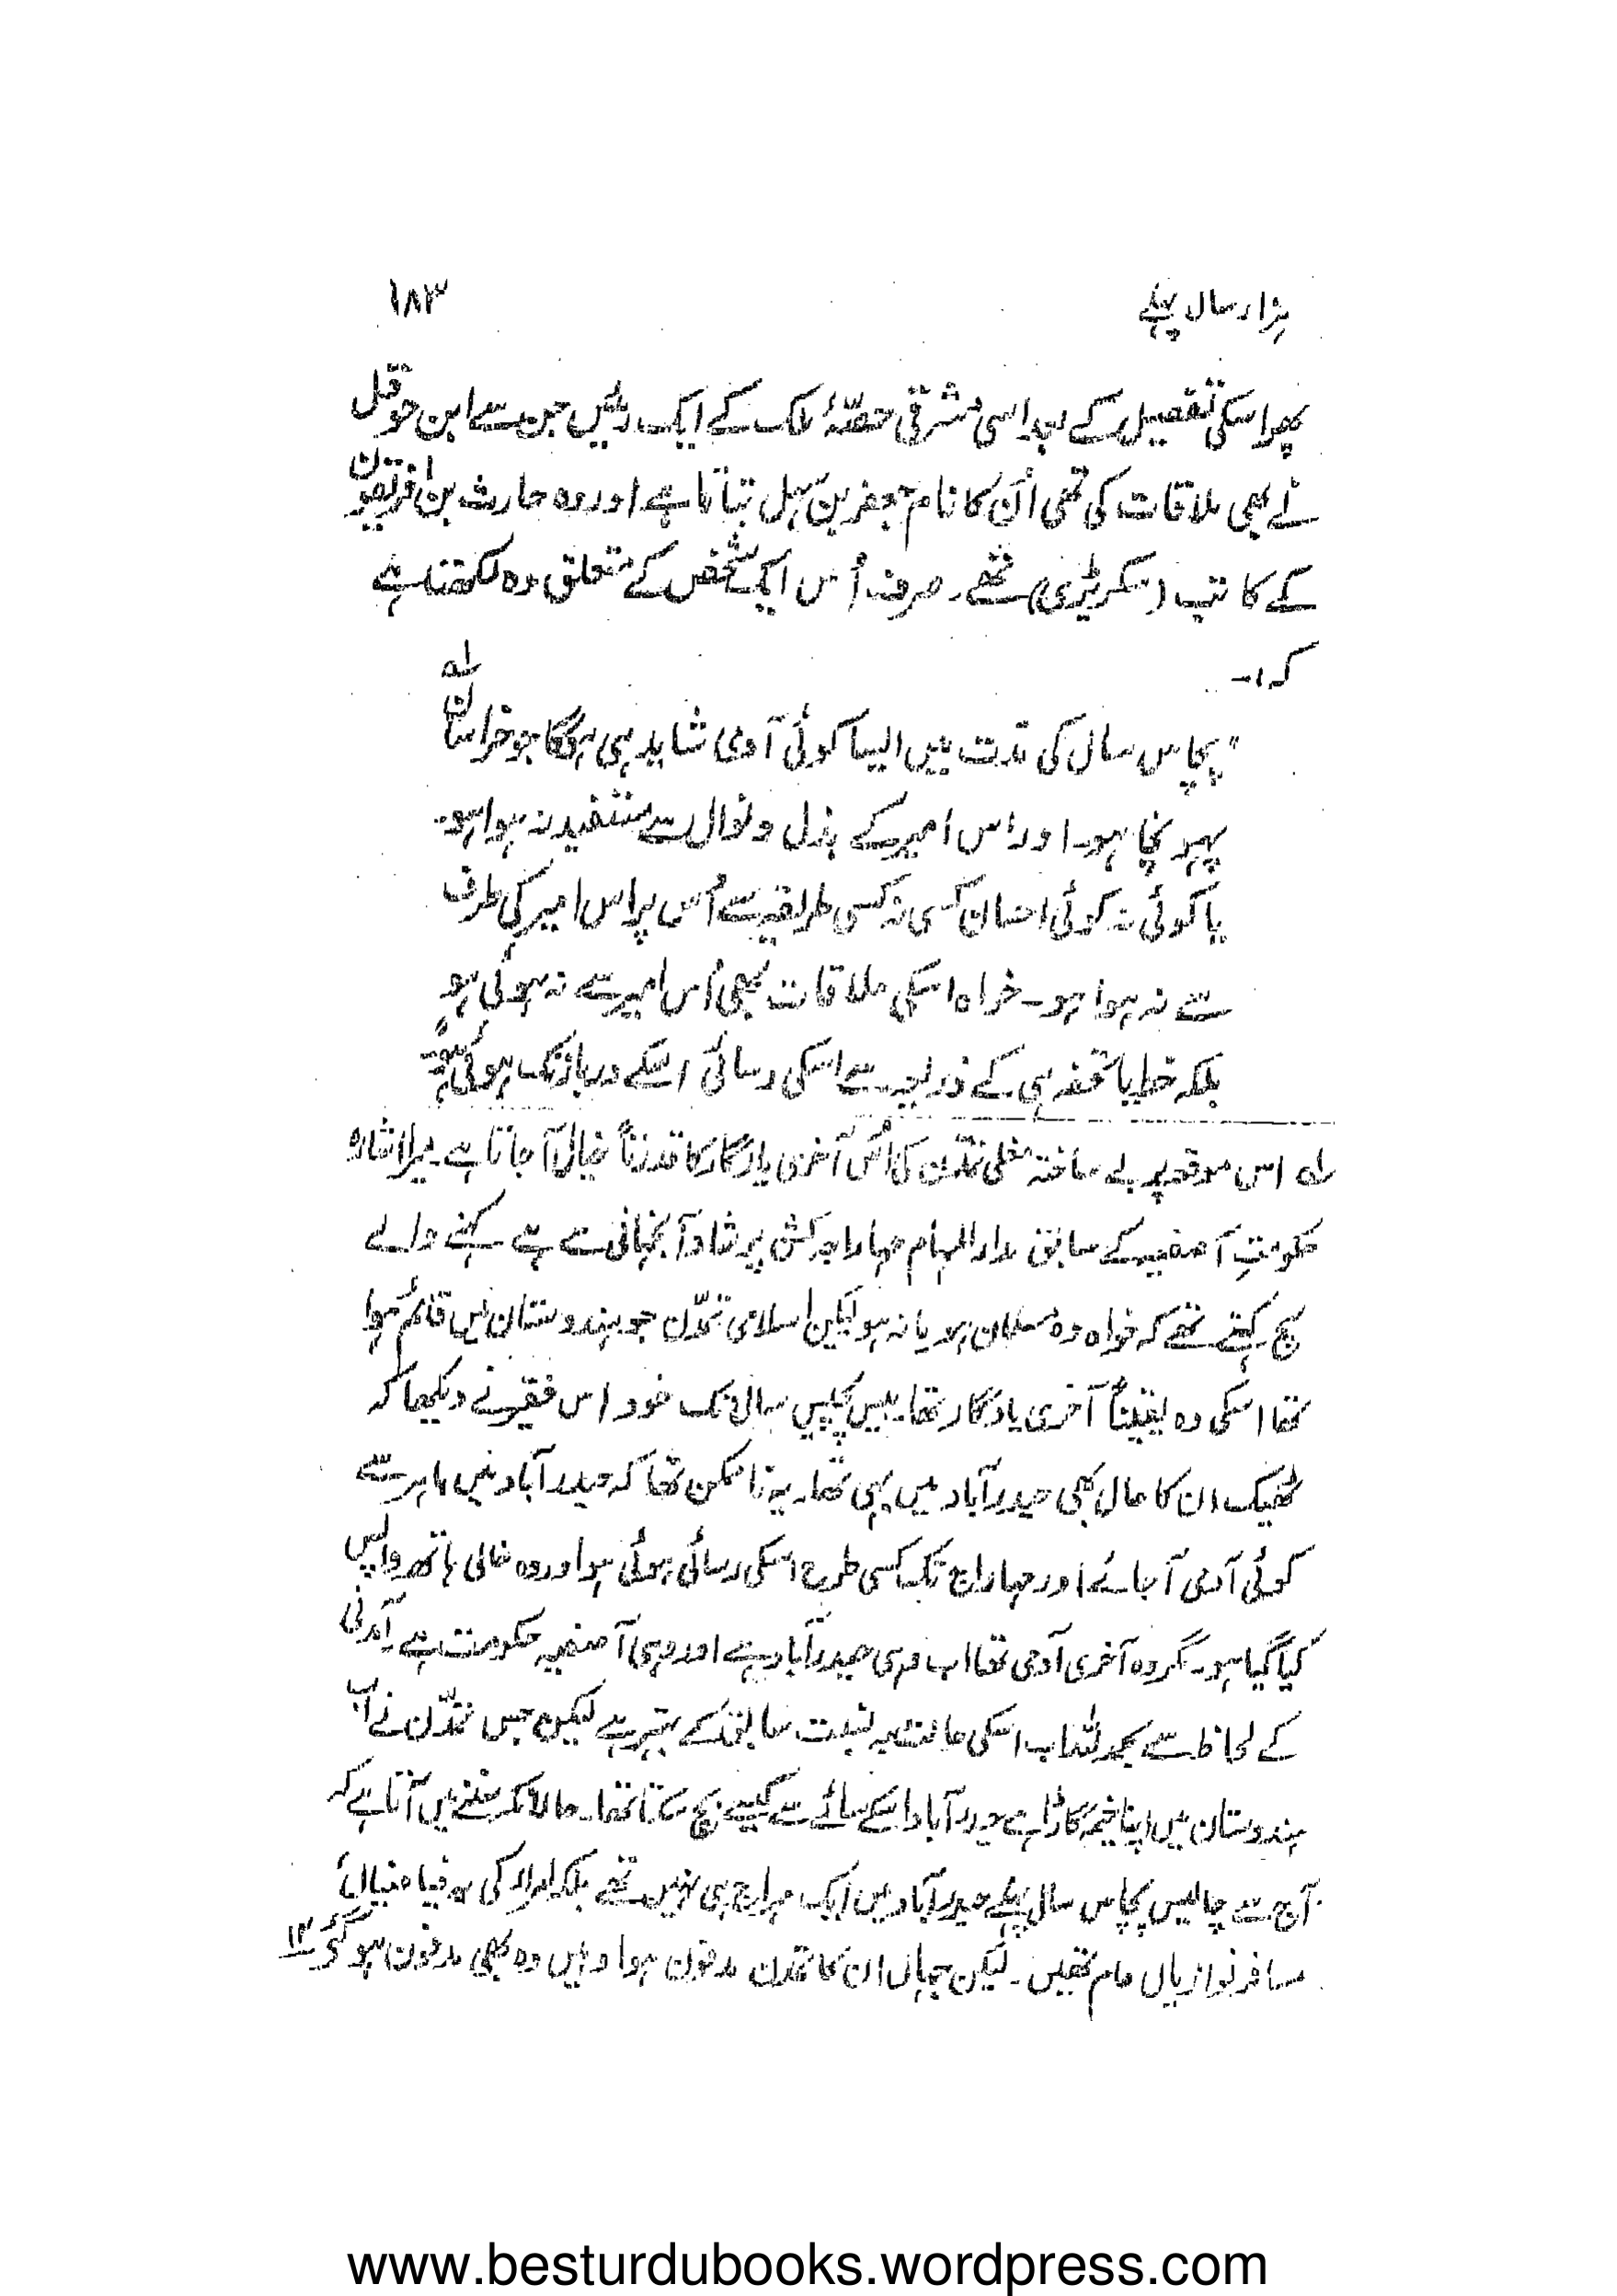 ہزار سال پہلے
۱۸۳
پھر اسکی تفصیل کے بعد اسی مشرقی حصّۂ ملک کے ایک رئیس جن سے ابن حوقل
نے بھی ملاقات کی تھی اُن کا نام جعفر بن سہل بتاتا ہے اور وہ حارث بن افریقون
کے کاتب (سکریٹری) تھے۔ صرف اُس ایک شخص کے متعلق وہ لکھتا ہے
کہ:۔
"پچاس سال کی مدت میں ایسا کوئی آدمی شاید ہی ہوگا جو خراسان ۱؎
پہونچا ہو۔ اور اس امیر کے بذل و نوال سے مستفید نہ ہوا ہو۔
یا کوئی نہ کوئی احسان کسی نہ کسی طریقہ سے اُس پر اس امیر کی طرف
سے نہ ہوا ہو۔ خواہ اسکی ملاقات بھی اُس امیر سے نہ ہوئی ہو
بلکہ خط یا تحفہ ہی کے ذریعہ سے اسکی رسائی اسکے دربار تک ہوئی ہو۔"
۱؎ اس موقعہ پر بے ساختہ مغلی تمدّن کی اُس آخری یادگار کا قدرتاً خیال آجاتا ہے۔ میرا اشارہ
حکومتِ آصفیہ کے سابق مدارالمہام مہاراجہ کشن پرشاد آنجہانی سے ہے کہنے والے
سچ کہتے تھے کہ خواہ وہ مسلمان ہو یا نہ ہو لیکن اسلامی تمدّن جو ہندوستان میں قائم ہوا
تھا اسکی وہ یقیناً آخری یادگار تھا۔ بیس پچیس سال تک خود اس فقیر نے دیکھا کہ
ٹھیک ان کا حال بھی حیدرآباد میں یہی تھا۔ یہ ناممکن تھا کہ حیدرآباد میں باہر سے
کوئی آدمی آجائے اور مہاراج تک کسی طرح اسکی رسائی ہوئی ہو اور وہ خالی ہاتھ واپس
کیا گیا ہو۔ مگر وہ آخری آدمی تھا اب وہی حیدرآباد ہے اور وہی آصفیہ حکومت ہے آمدنی
کے لحاظ سے بحمدللہ اب اسکی حالت بہ نسبت سابق کے بہتر ہے لیکن جس تمدّن نے اب
ہندوستان میں اپنا خیمہ گاڑا ہے حیدرآباد اسکے سائے سے کیسے بچ سکتا تھا۔ حالانکہ سننے میں آتا ہے کہ
آج سے چالیس پچاس سال پہلے حیدرآباد میں ایک مہاراج ہی نہیں تھے بلکہ امراء کی یہ فیاضیاں
مسافر نوازیاں عام تھیں۔ لیکن جہاں ان کا تمدن مدفون ہوا وہیں وہ بھی مدفون ہو گئے ۱۲
www.besturdubooks.wordpress.com